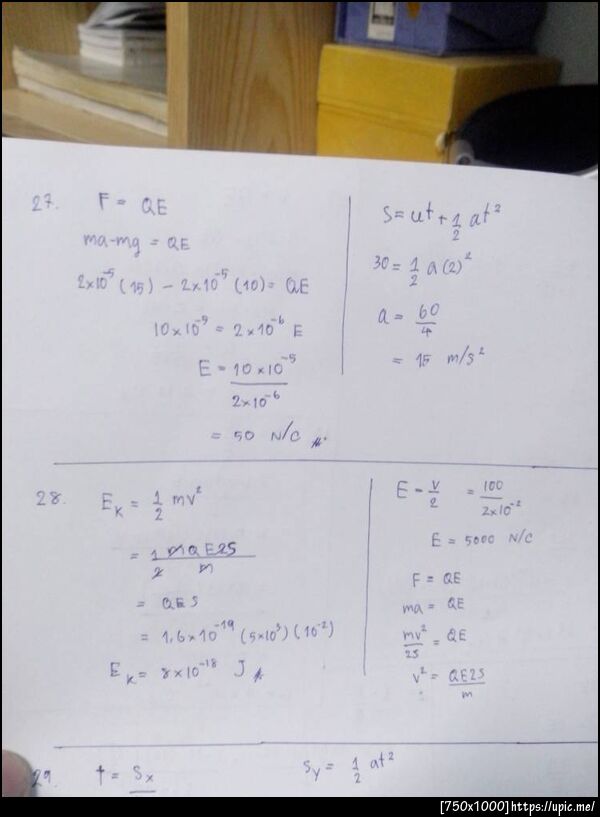 27. F = QE
ma-mg = QE
2×10⁻⁵ (15) − 2×10⁻⁵ (10) = QE
10×10⁻⁵ = 2×10⁻⁶ E
E = 10×10⁻⁵
2×10⁻⁶
= 50 N/C
S = ut + 1/2 at²
30 = 1/2 a(2)²
a = 60/4
= 15 m/s²
28. E_K = 1/2 mv²
= 1 m QE2S
2 m
= QES
= 1,6×10⁻¹⁹ (5×10³) (10⁻²)
E_K = 8×10⁻¹⁸ J
E = V/2 = 100/2×10⁻²
E = 5000 N/C
F = QE
ma = QE
mv²/2S = QE
v² = QE2S/m
29. t = Sx
Sy = 1/2 at²
[750x1000] https://upic.me/